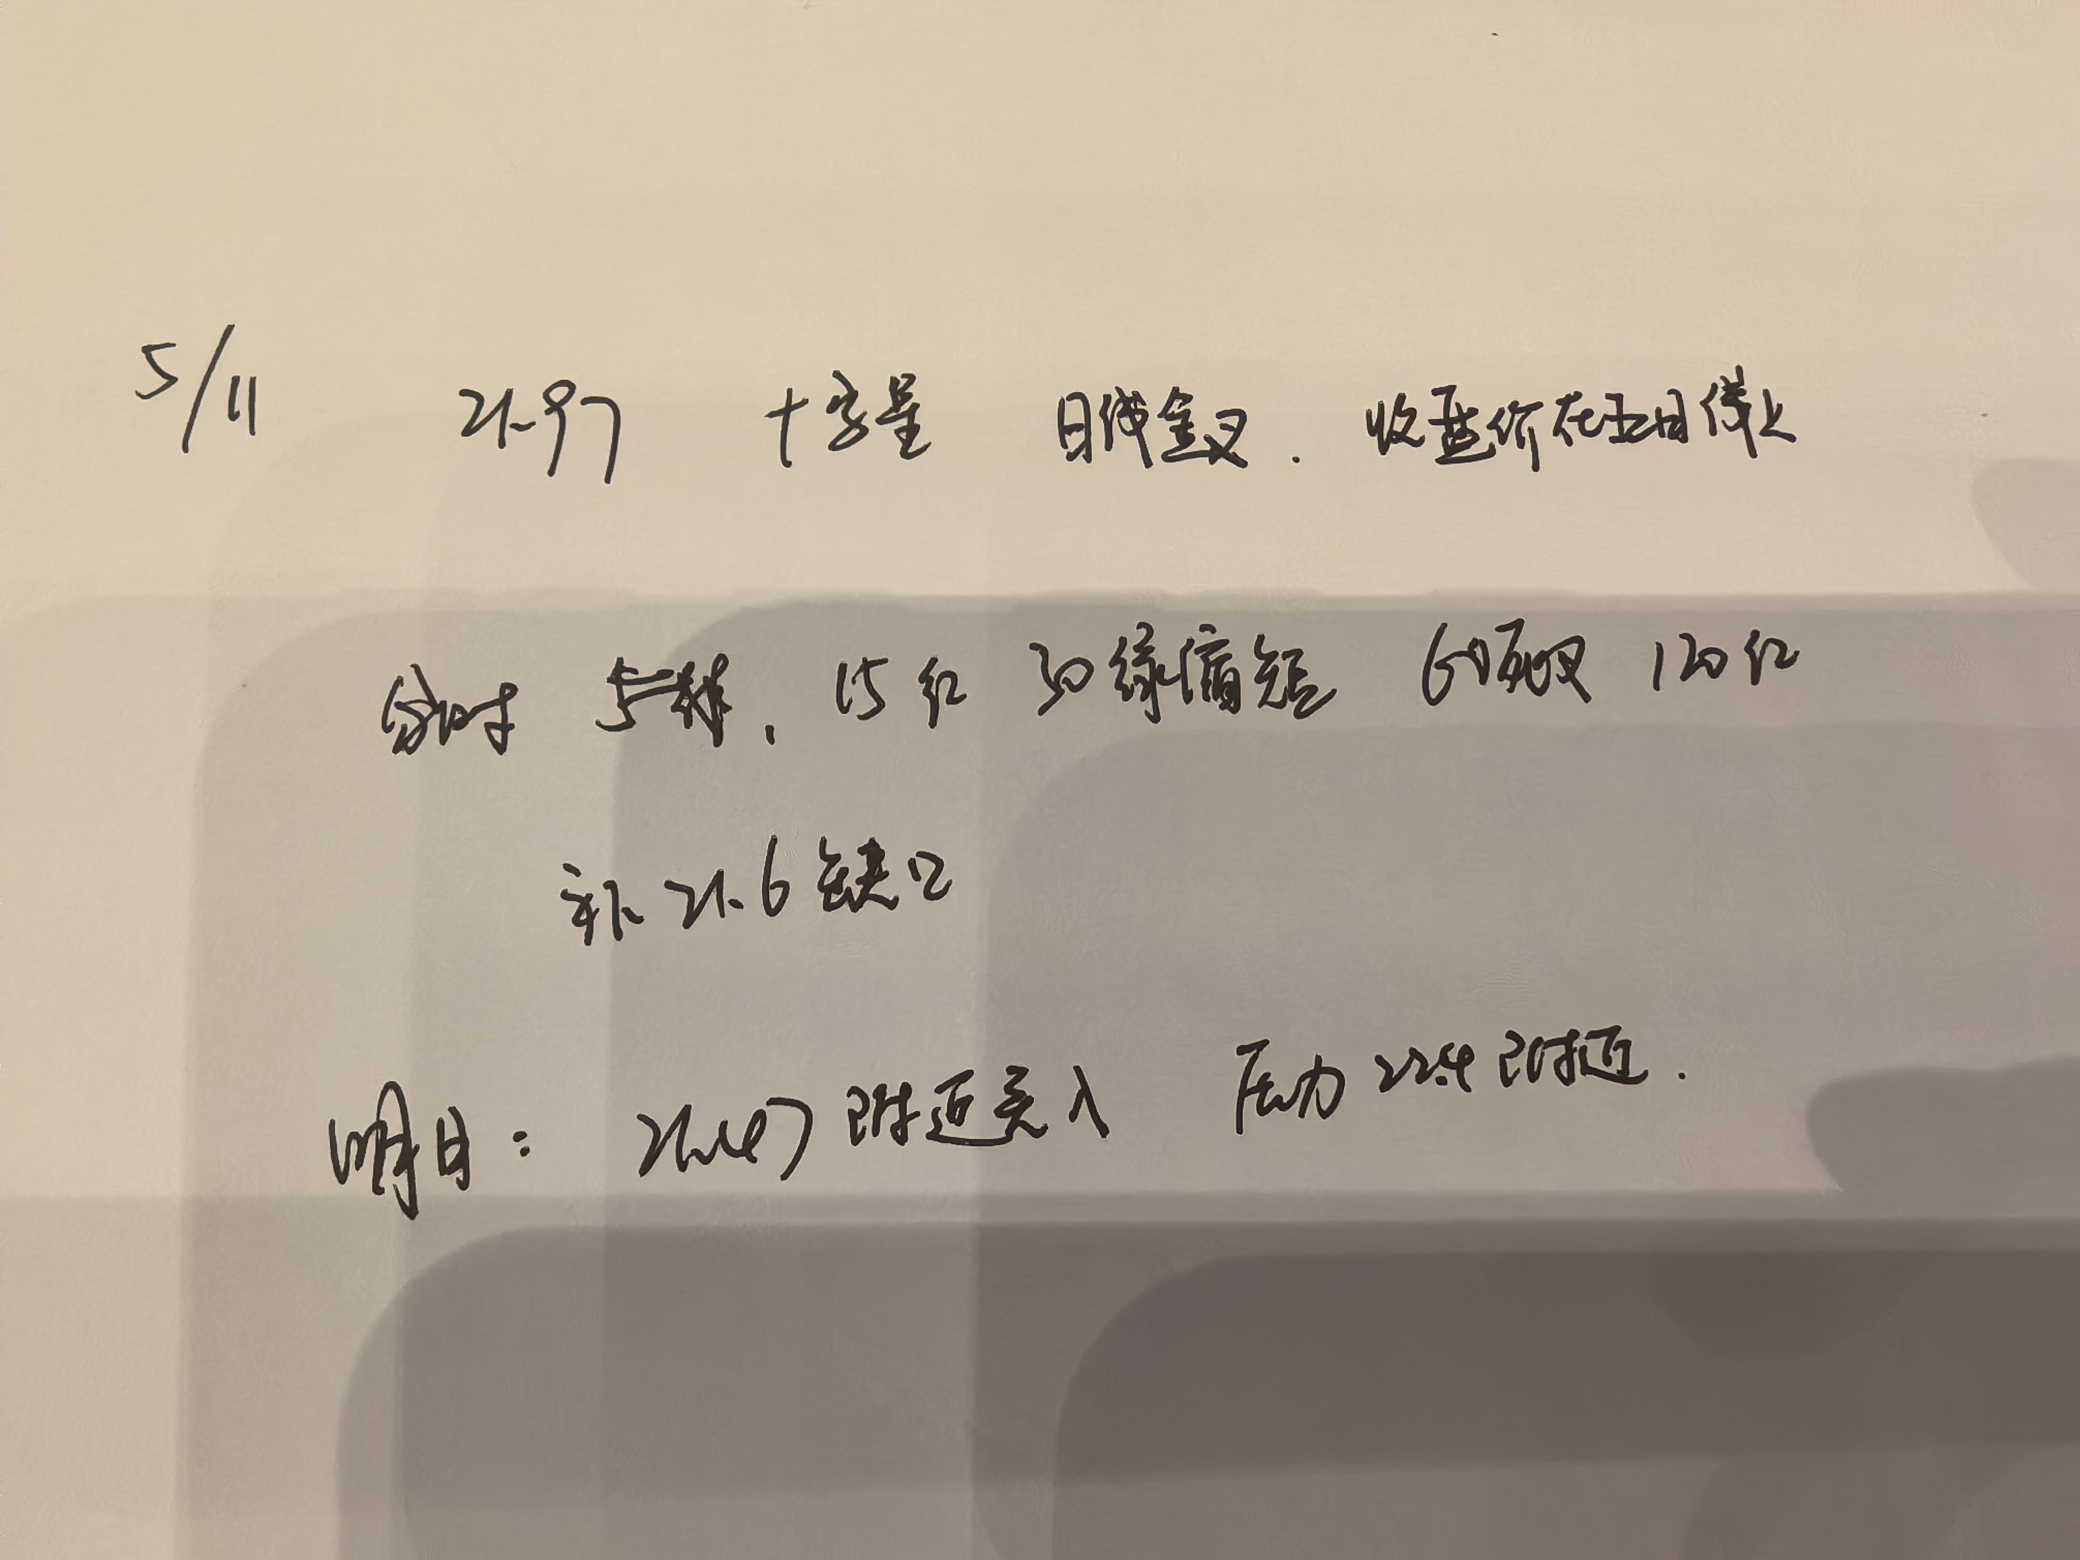 5/11 21.97 十字星 日线金叉. 收盘价在五日线上
分时 5绿, 15红 30绿缩短 60死叉 120红
补21.6缺口
明日: 21.47附近买入 压力22.4附近.